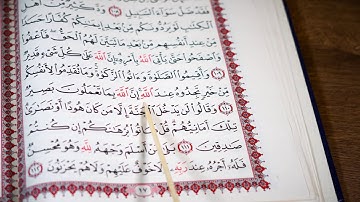 فَقَدْ ضَلَّ سَوَآءَ ٱلسَّبِيلِ ١٠٨ وَدَّ كَثِيرٌ مِّنْ أَهْلِ
ٱلْكِتَٰبِ لَوْ يَرُدُّونَكُم مِّنۢ بَعْدِ إِيمَٰنِكُمْ كُفَّارًا حَسَدًا
مِّنْ عِندِ أَنفُسِهِم مِّنۢ بَعْدِ مَا تَبَيَّنَ لَهُمُ ٱلْحَقُّ فَٱعْفُوا۟
وَٱصْفَحُوا۟ حَتَّىٰ يَأْتِىَ ٱللَّهُ بِأَمْرِهِۦٓ إِنَّ ٱللَّهَ عَلَىٰ كُلِّ شَىْءٍ قَدِيرٌ
١٠٩ وَأَقِيمُوا۟ ٱلصَّلَوٰةَ وَءَاتُوا۟ ٱلزَّكَوٰةَ وَمَا تُقَدِّمُوا۟ لِأَنفُسِكُم
مِّنْ خَيْرٍ تَجِدُوهُ عِندَ ٱللَّهِ إِنَّ ٱللَّهَ بِمَا تَعْمَلُونَ بَصِيرٌ
١١٠ وَقَالُوا۟ لَن يَدْخُلَ ٱلْجَنَّةَ إِلَّا مَن كَانَ هُودًا أَوْ نَصَٰرَىٰ
تِلْكَ أَمَانِيُّهُمْ قُلْ هَاتُوا۟ بُرْهَٰنَكُمْ إِن كُنتُمْ
صَٰدِقِينَ ١١١ بَلَىٰ مَنْ أَسْلَمَ وَجْهَهُۥ لِلَّهِ وَهُوَ مُحْسِنٌ
فَلَهُۥٓ أَجْرُهُۥ عِندَ رَبِّهِۦ وَلَا خَوْفٌ عَلَيْهِمْ وَلَا هُمْ يَحْزَنُونَ ١١٢
١٧